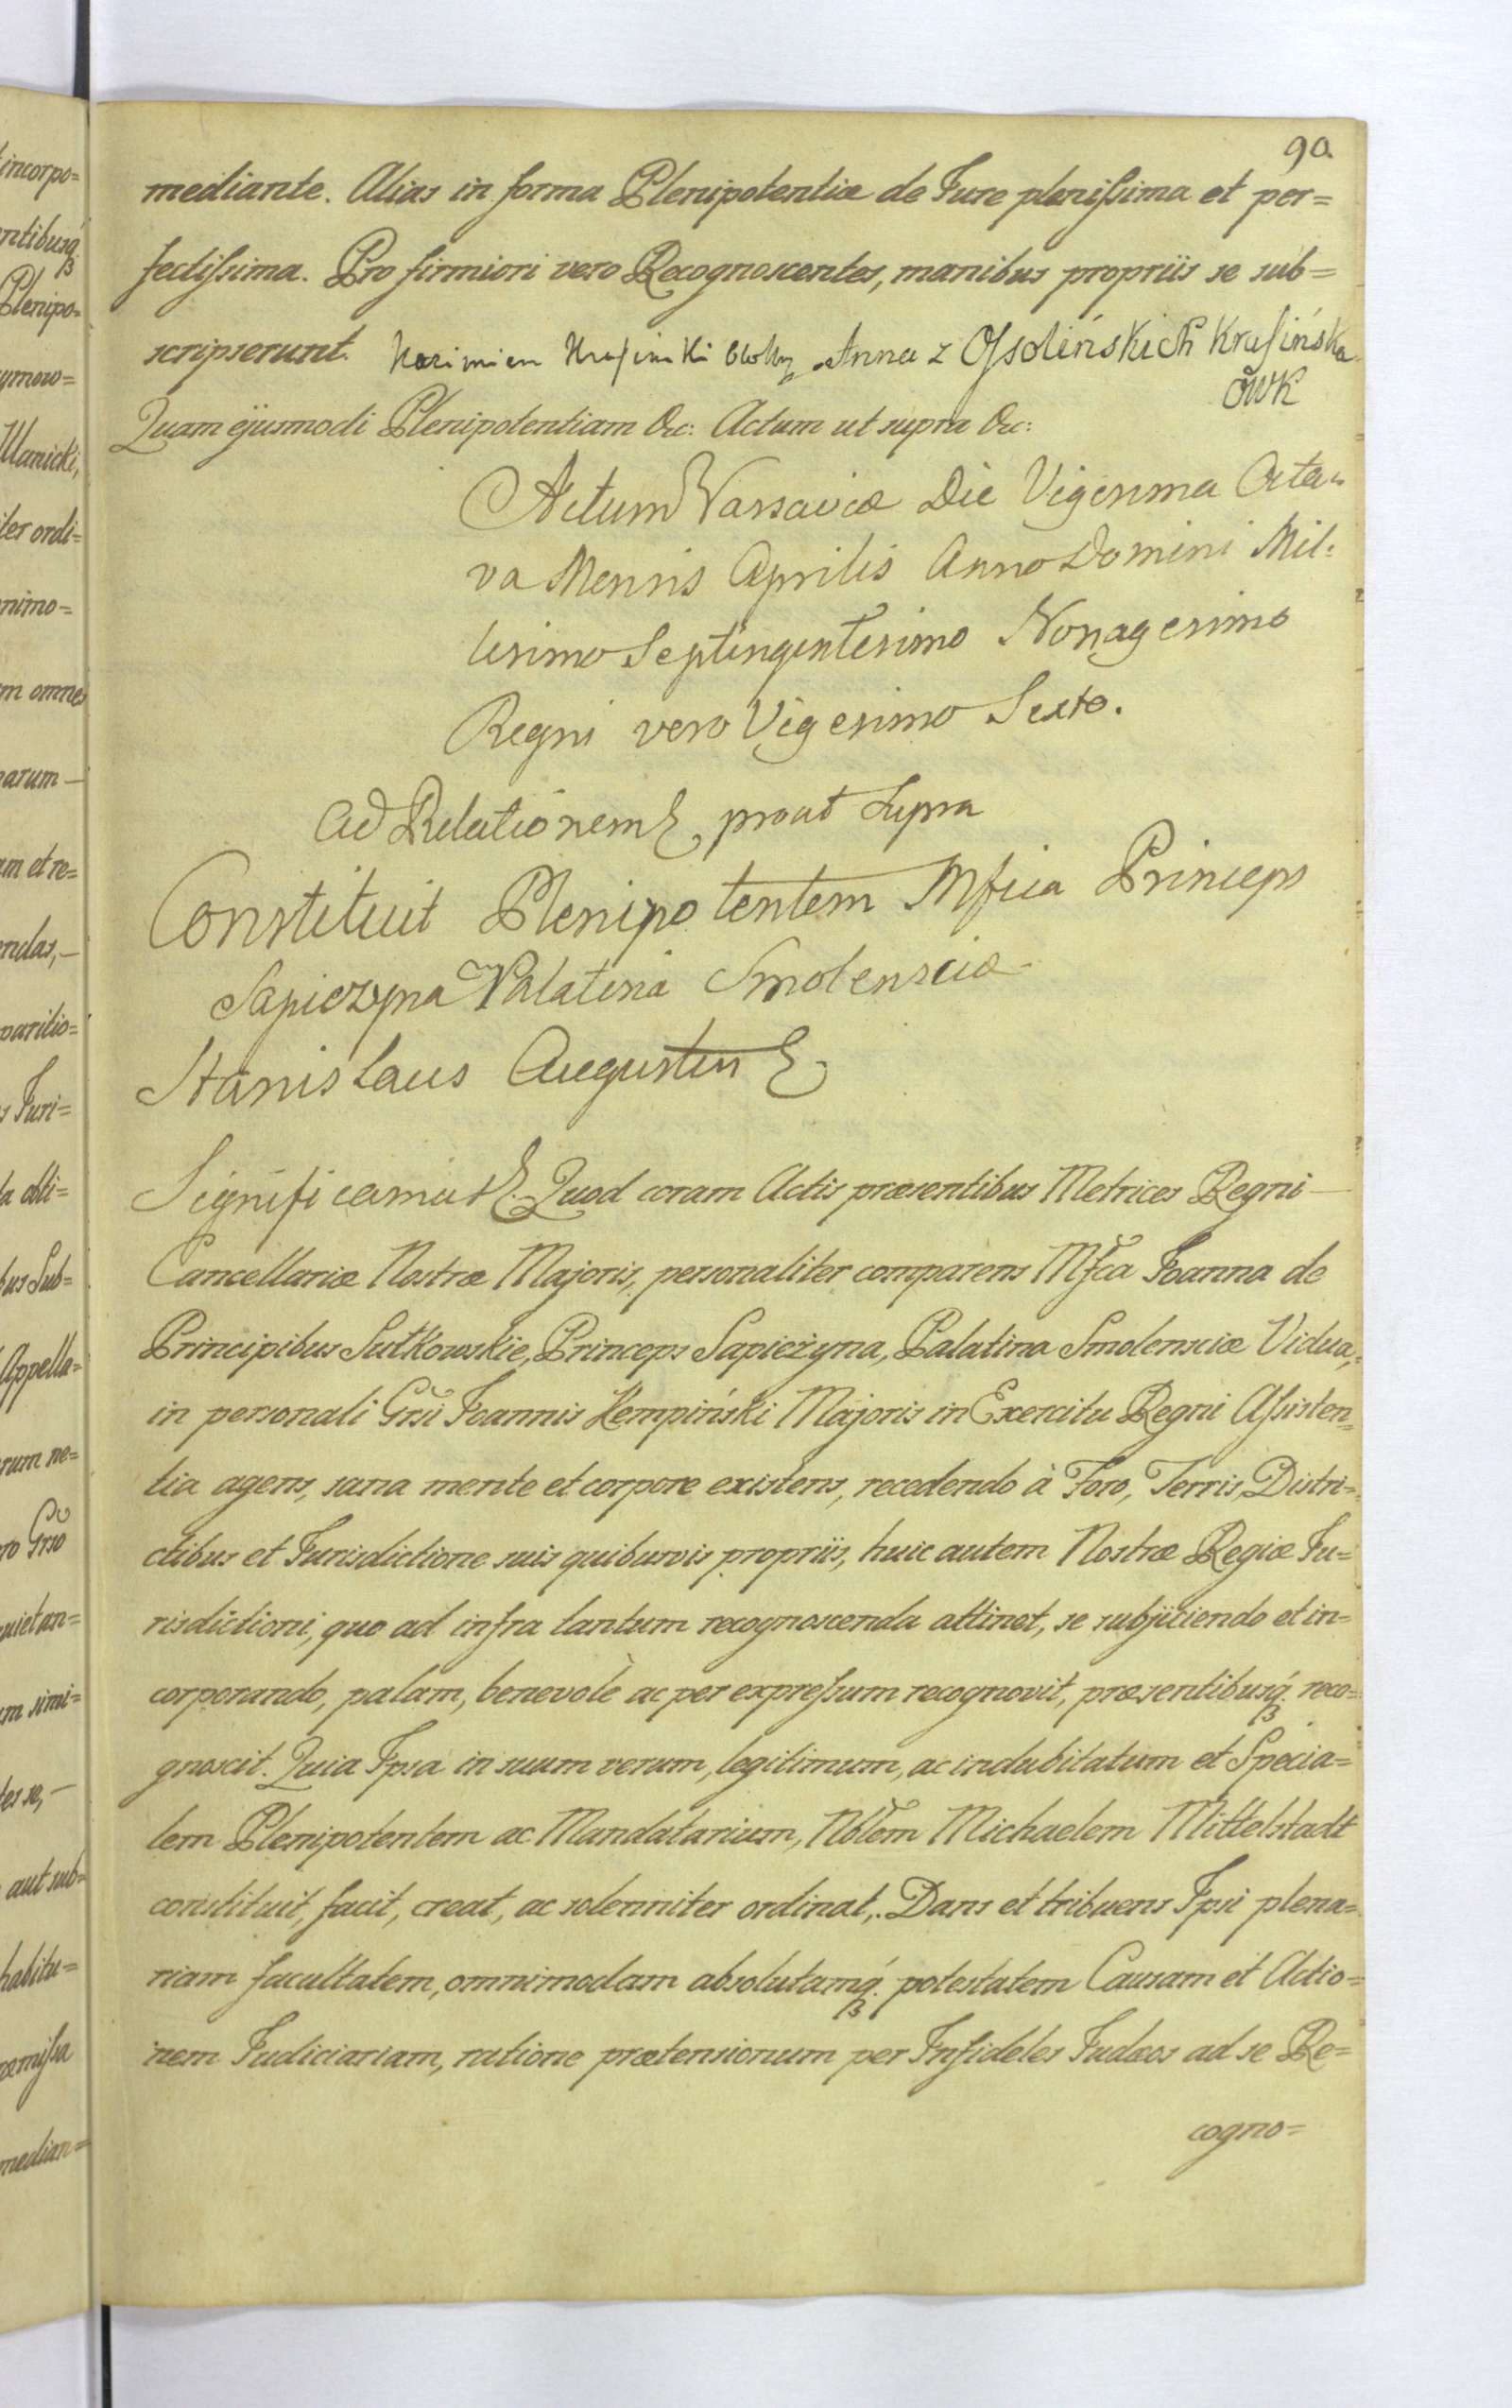 90.
mediante. Alias in forma Plenipotentiæ de Jure plenissima et per=
fectissima. Pro firmiori vero Recognoscentes, manibus propriis se sub=
scripserunt. Kazimierz Krasinski Anna z Ossolińskich Krasińska
OWK
Quam ejusmodi Plenipotentiam &c: Actum ut supra &c:
Actum Varsaviæ Die Vigesima Octa=
va Mensis Aprilis Anno Domini Mil=
lesimo Septingentesimo Nonagesimo
Regni vero Vigesimo Sexto.
Ad Relationem & prout supra
Constituit Plenipotentem Mfica Princeps
Sapiezyna Palatina Smolensciæ
Stanislaus Augustus &
Significamus &. Quod coram Actis præsentibus Metrices Regni —
Cancellariæ Nostræ Majoris, personaliter comparens Mfca Joanna de
Principibus Sułkowskie, Princeps Sapieżyna, Palatina Smolensciæ Vidua,
in personali Grsi Joannis Kempiński Majoris in Exercitu Regni Assisten=
tia agens, sana mente et corpore existens, recedendo à Foro, Terris, Distri=
ctibus et Jurisdictione suis quibusvis propriis, huic autem Nostræ Regiæ Ju=
risdictioni, quo ad infra tantum recognoscenda attinet, se subjiciendo et in=
corporando, palam, benevolè ac per expressum recognovit, præsentibusq. reco=
gnoscit. Quia Ipsa in suum verum, legitimum, ac indubitatum et Specia=
lem Plenipotentem ac Mandatarium, Nblem Michaelem Mittelstadt
constituit, facit, creat, ac solenniter ordinat,. Dans et tribuens Ipsi plena=
riam facultatem, omnimodam absolutamq. potestatem Causam et Actio=
nem Judiciariam, ratione prætensionum per Infideles Judæos ad se Re=
cogno=